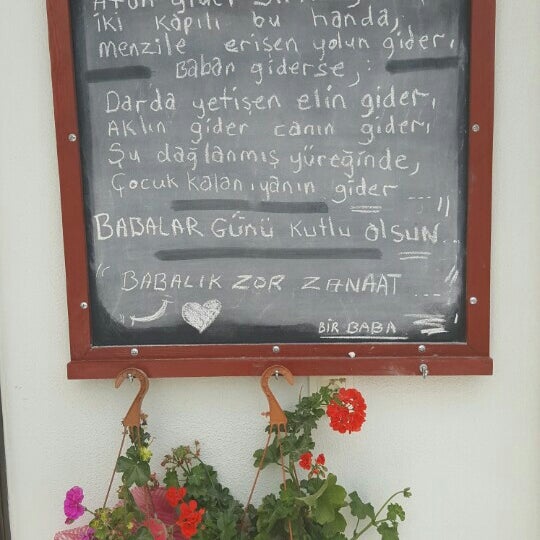 gider
iki kapılı bu handa,
menzile erişen yolun gider,
Baban giderse,
Darda yetişen elin gider,
Aklın gider canın gider,
Şu dağlanmış yüreğinde,
Çocuk kalan yanın gider ..."
BABALAR GÜNÜ KUTLU OLSUN...
"BABALIK ZOR ZANAAT ..."
BİR BABA